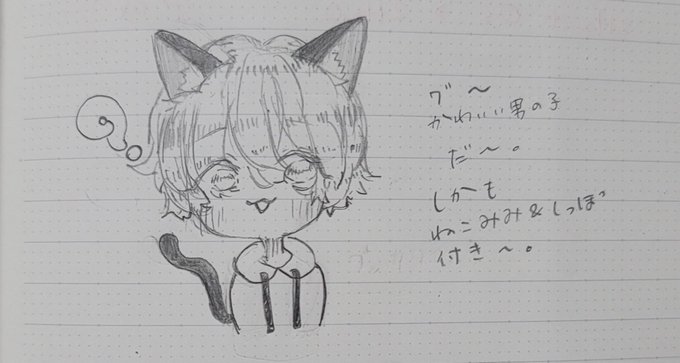 ワ～
かわいい男の子
だ～。
しかも
ねこみみ&しっぽ
付き～。